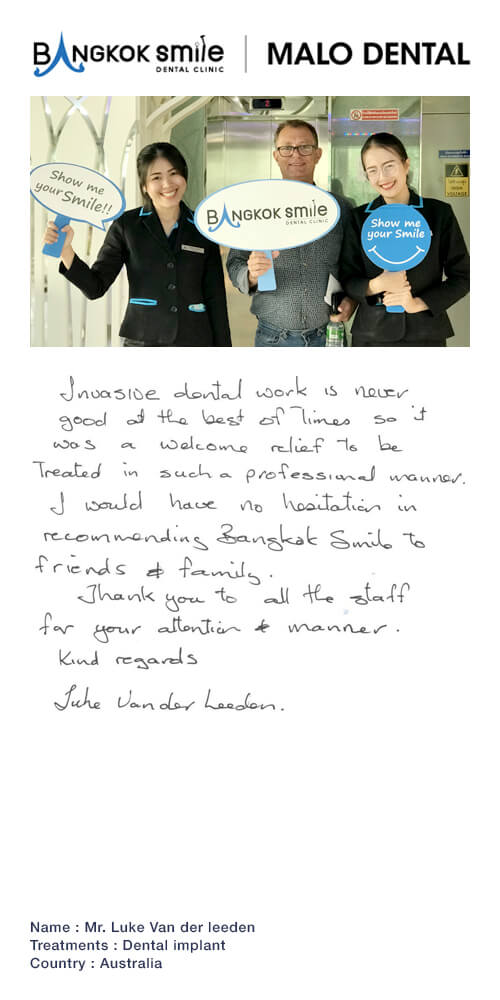 BANGKOK smile
DENTAL CLINIC
MALO DENTAL
Show me
your Smile!!
BANGKOK smile
DENTAL CLINIC
Show me
your Smile
Invasive dental work is never
good at the best of Times so it
was a welcome relief to be
Treated in such a professional manner.
I would have no hesitation in
recommending Bangkok Smile to
friends & family.
Thank you to all the staff
for your attention & manner.
Kind regards
Luke Van der Leeden.
Name : Mr. Luke Van der leeden
Treatments : Dental implant
Country : Australia